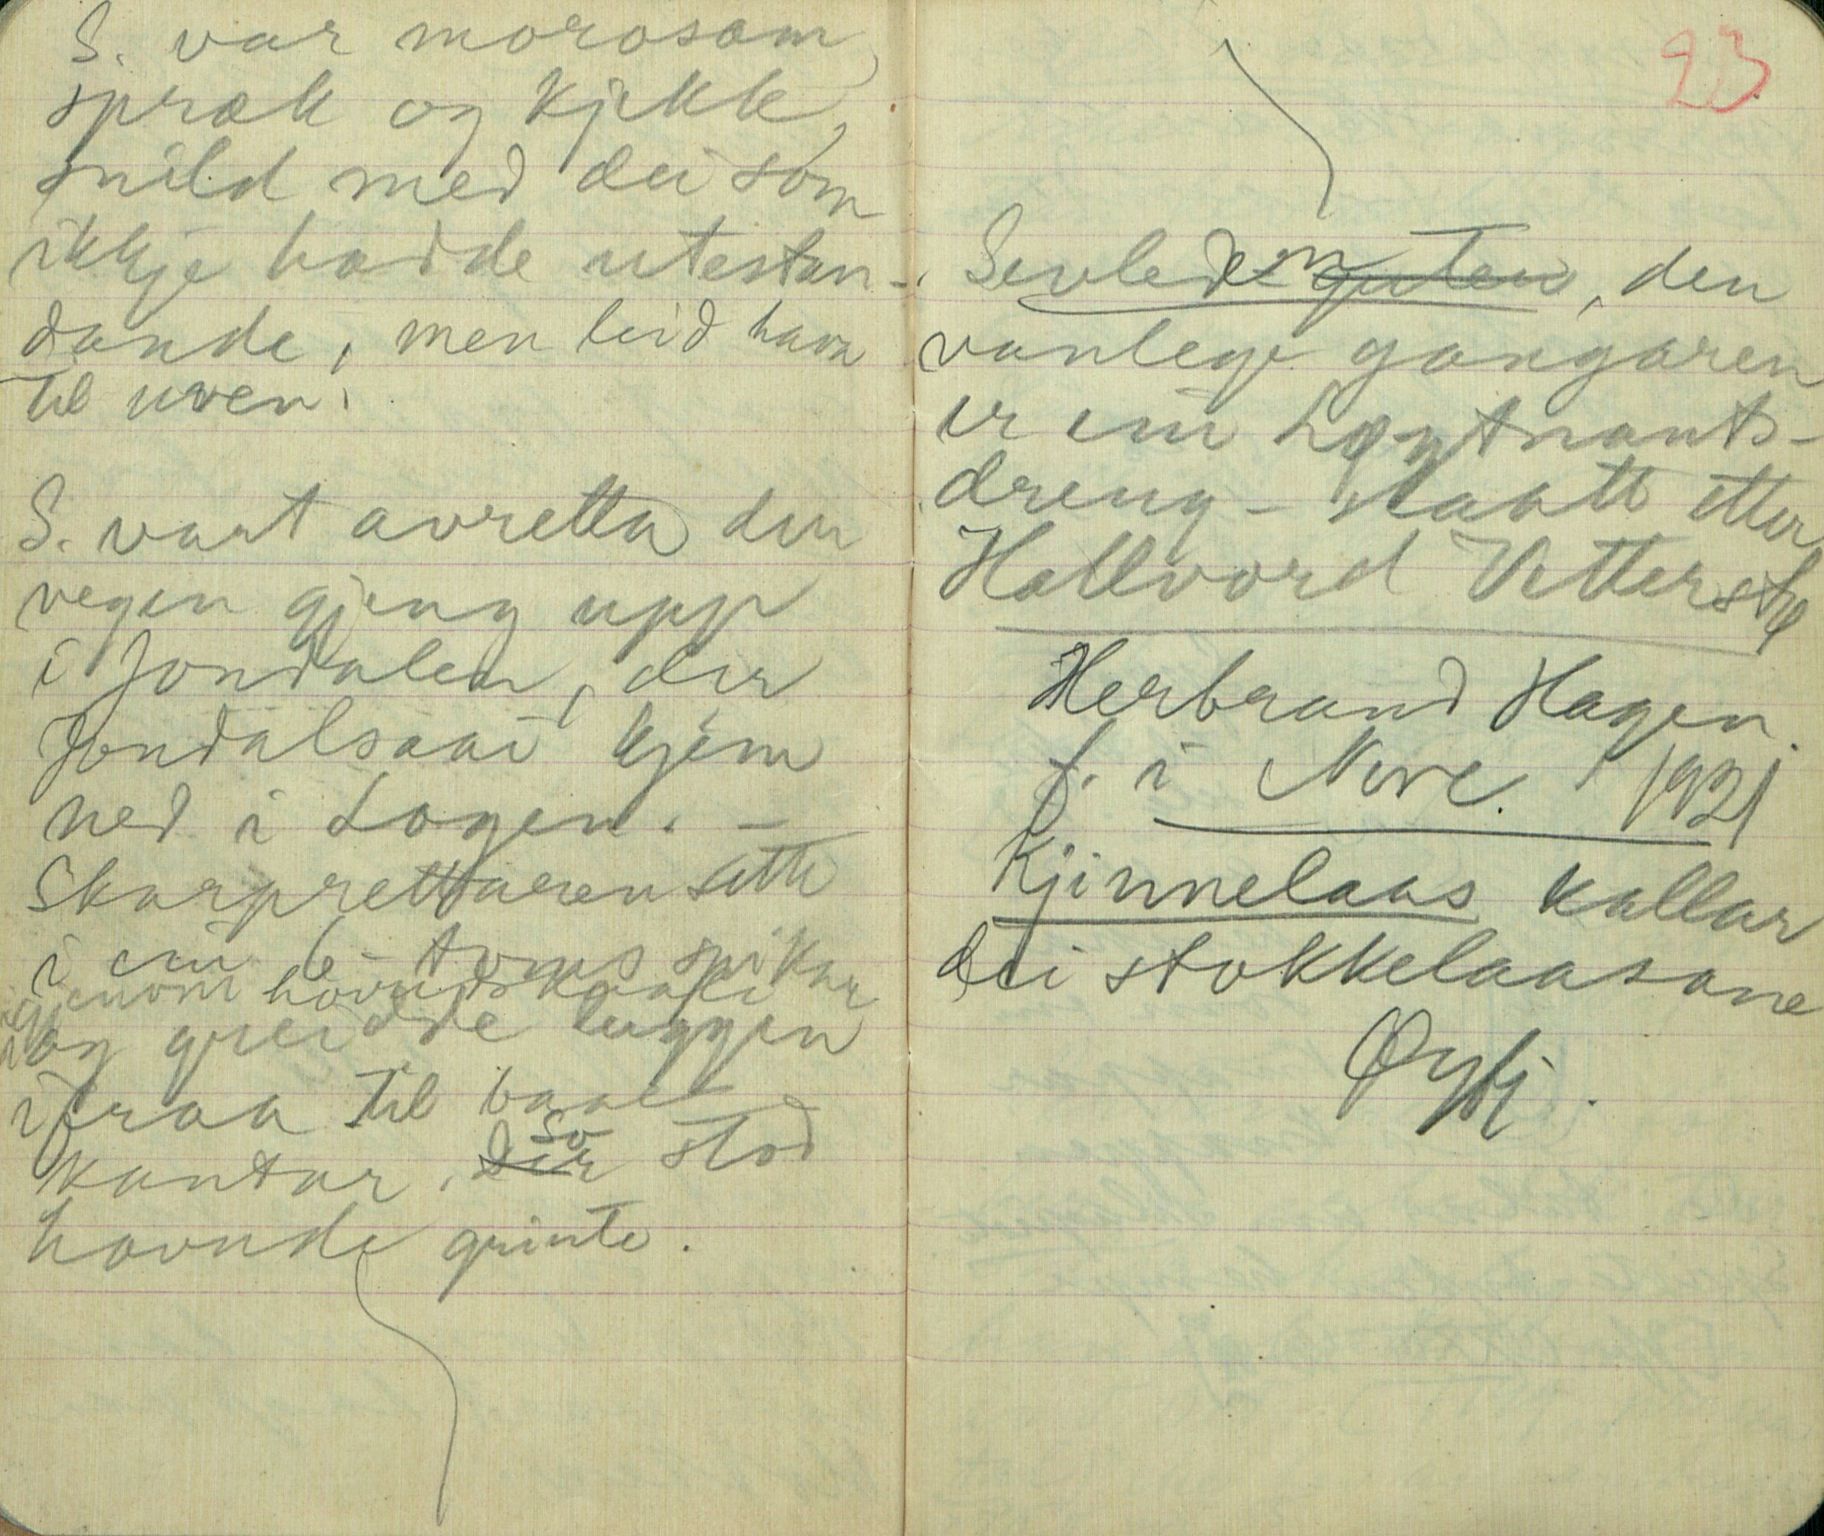 S. var morosam,
spræk og kjekk,
snild med dei som
ikkje hadde utestan-
dande, men leid hava
til uven.
S. vart avretta der
vegen gjeng upp
i Jondalen, der
Jondalsaai kjem
ned i Logen. –
Skarprettaren sette
i ein 6-toms spikar
igjenom hovudskaali
og greidde luggen
ifraa til baae
kantar, der so stod
hovude grinte.
23
Sevleden guten, den
vanlege gangaren
er ein Løytnants-
dreng – slaatt etter
Hallvord Vetterstø
Herbrand Hagen.
f. i Nore. 1921
Kjinnelaas kallar
dei stokkelaasane
Øyfj.